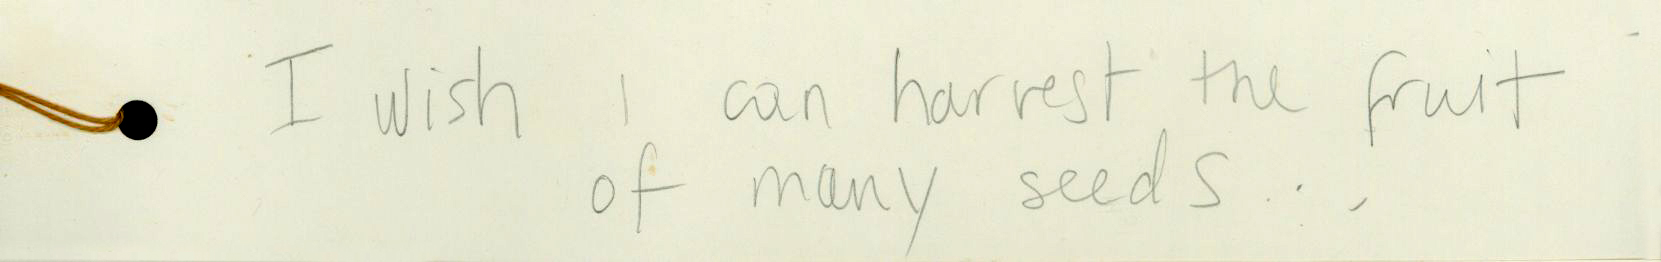 I wish i can harvest the fruit
of many seeds...